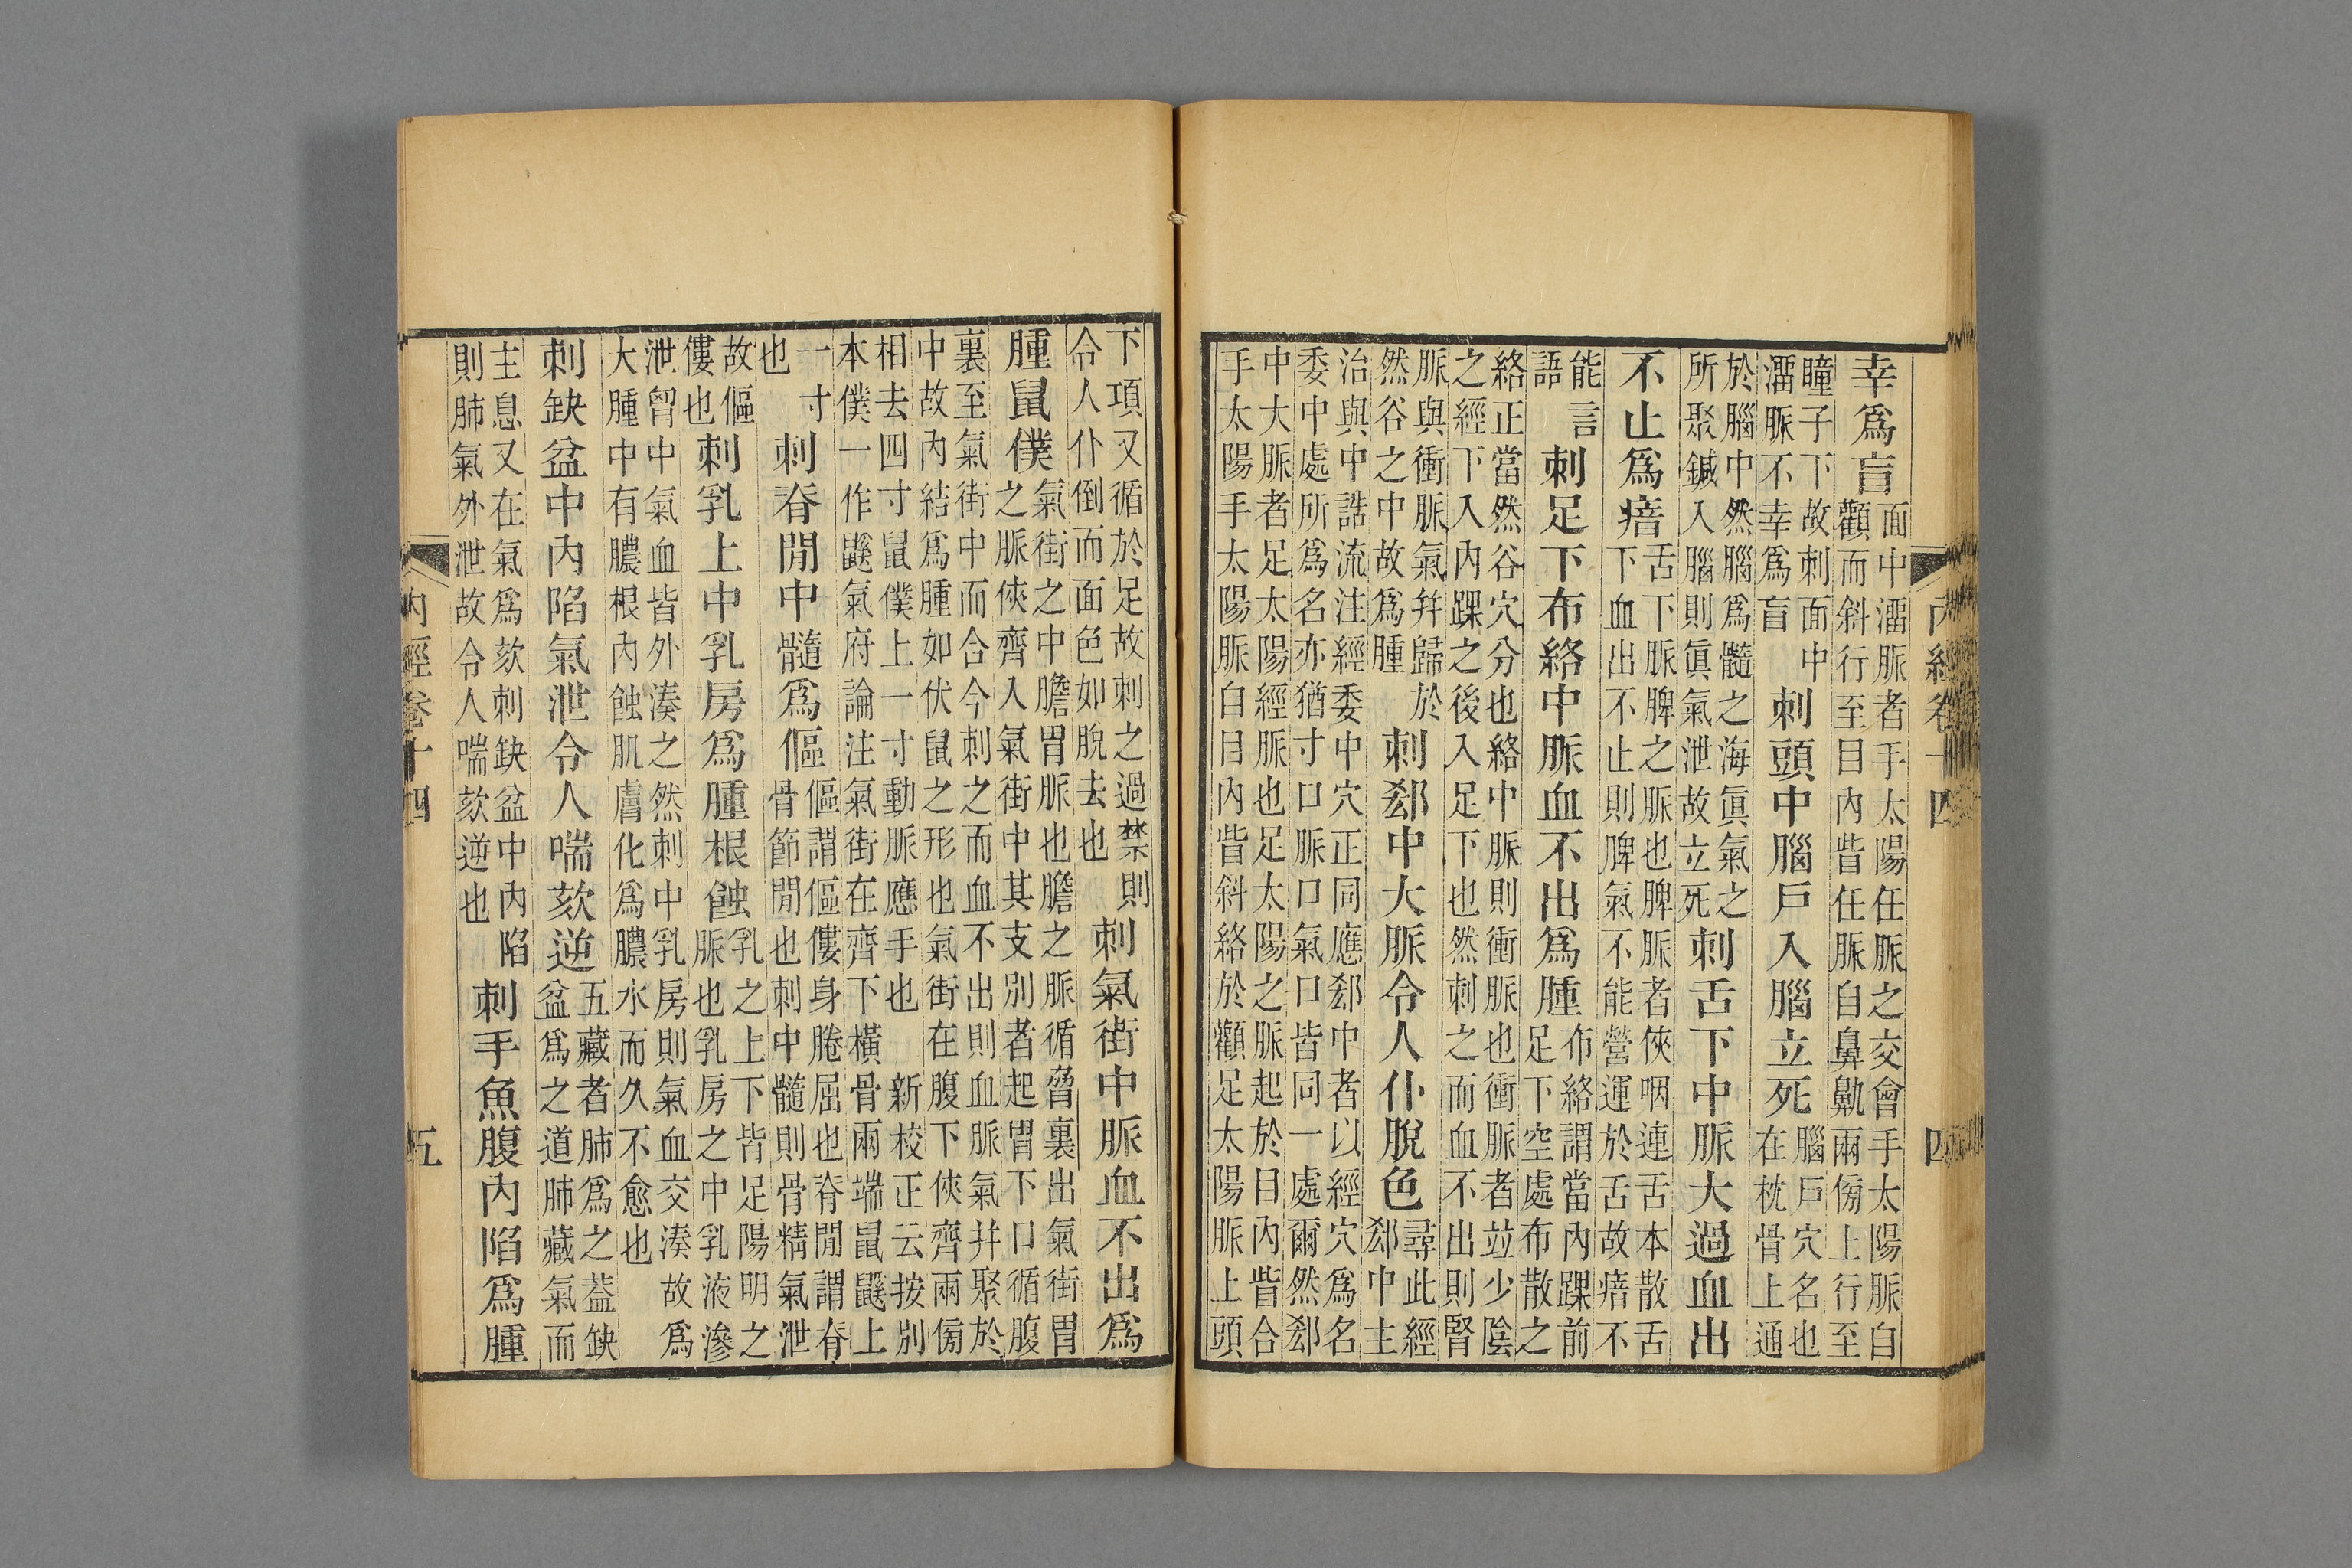 幸爲盲
面中溜脈者手太陽任脈之交會手太陽脈自
顴而斜行至目內眥任脈自鼻鼽兩傍上行至
瞳子下故刺面中
溜脈不幸爲盲
刺頭中腦戶入腦立死
腦戶穴名也
在枕骨上通
於腦中然腦爲髓之海眞氣之
所聚鍼入腦則眞氣泄故立死
刺舌下中脈大過血出
不止爲瘖
舌下脈脾之脈也脾脈者俠咽連舌本散舌
下血出不止則脾氣不能營運於舌故瘖不
能言
語
刺足下布絡中脈血不出爲腫
布絡謂當內踝前
足下空處布散之
絡正當然谷穴分也絡中脈則衝脈也衝脈者竝少陰
之經下入內踝之後入足下也然刺之而血不出則腎
脈與衝脈氣幷歸於
然谷之中故爲腫
刺郄中大脈令人仆脫色
尋此經
郄中主
治與中誥流注經委中穴正同應郄中者以經穴爲名
委中處所爲名亦猶寸口脈口氣口皆同一處爾然郄
中大脈者足太陽經脈也足太陽之脈起於目內眥合
手太陽手太陽脈自目內眥斜絡於顴足太陽脈上頭
內經卷十四
四
下項又循於足故刺之過禁則
令人仆倒而面色如脫去也
刺氣街中脈血不出爲
腫鼠僕
氣街之中膽胃脈也膽之脈循脅裏出氣街胃
之脈俠齊入氣街中其支別者起胃下口循腹
裏至氣街中而合今刺之而血不出則血脈氣并聚於
中故內結爲腫如伏鼠之形也氣街在腹下俠齊兩傍
相去四寸鼠僕上一寸動脈應手也 新校正云按別
本僕一作鼷氣府論注氣街在齊下橫骨兩端鼠鼷上
一寸
也
刺脊閒中髓爲傴
傴謂傴僂身踡屈也脊閒謂脊
骨節閒也刺中髓則骨精氣泄
故傴
僂也
刺乳上中乳房爲腫根蝕
乳之上下皆足陽明之
脈也乳房之中乳液滲
泄胷中氣血皆外湊之然刺中乳房則氣血交湊故爲
大腫中有膿根內蝕肌膚化爲膿水而久不愈也
刺缺盆中內陷氣泄令人喘欬逆
五藏者肺爲之蓋缺
盆爲之道肺藏氣而
主息又在氣爲欬刺缺盆中內陷
則肺氣外泄故令人喘欬逆也
刺手魚腹內陷爲腫
內經卷十四
五